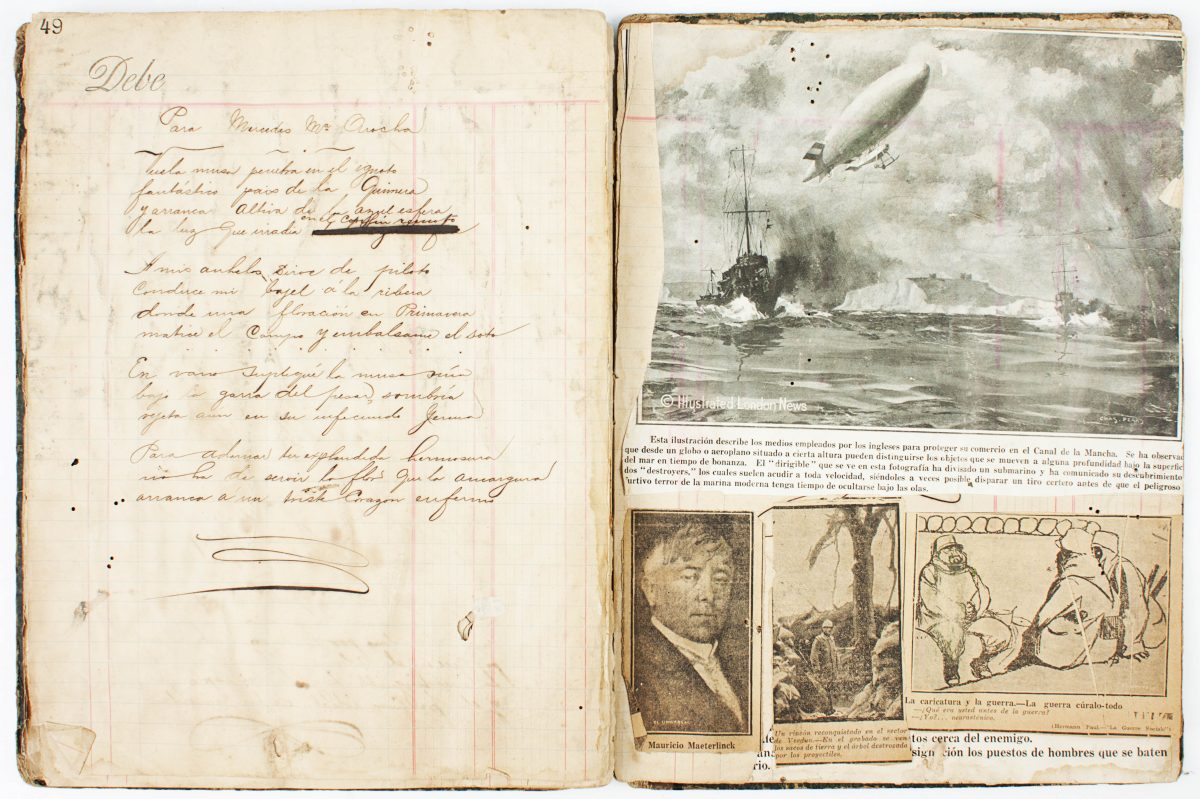 49
Debe
Para Mercedes Ma Arocha
Vuela musa penetra en el ignoto
fantástico pais de la Quimera
y arranca altiva de la azul esfera
la luz que irradia en el confin remoto
A mis anhelos sirve de piloto
conduce mi bajel á la ribera
donde una floración en Primavera
matice el Campo y embalsame el soto
En vano supliqué la musa
bajo la garra del pesar, sombria
vejeta aun en su infecundo
Para adornar tu esplendida hermosura
no ha de servir la flor que la amargura
arranca a un triste Corazon enfermo
© Illustrated London News
Esta ilustración describe los medios empleados por los ingleses para proteger su comercio en el Canal de la Mancha. Se ha observa
que desde un globo o aeroplano situado a cierta altura pueden distinguirse los objetos que se mueven a alguna profundidad bajo la superfic
del mar en tiempo de bonanza. El "dirigible" que se ve en esta fotografía ha divisado un submarino y ha comunicado su descubrimiento
dos "destroyers," los cuales suelen acudir a toda velocidad, siéndoles a veces posible disparar un tiro certero antes de que el peligroso
urtivo terror de la marina moderna tenga tiempo de ocultarse bajo las olas.
EL UNIVERSAL
Mauricio Maeterlinck
Un rincón reconquistado en el sector
de Verdun.—En el grabado se ven
los sacos de tierra y el árbol destrozado
por los proyectiles.
La caricatura y la guerra.—La guerra cúralo-todo
—¿Qué era usted antes de la guerra?
—¿Yo?... neurasténico.
(Hermann Paul.—"La Guerre Sociale")
tos cerca del enemigo.
sign ción los puestos de hombres que se baten
rio.